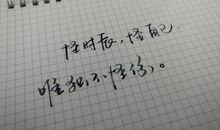 怪时辰、怪自己
唯独不怪你。